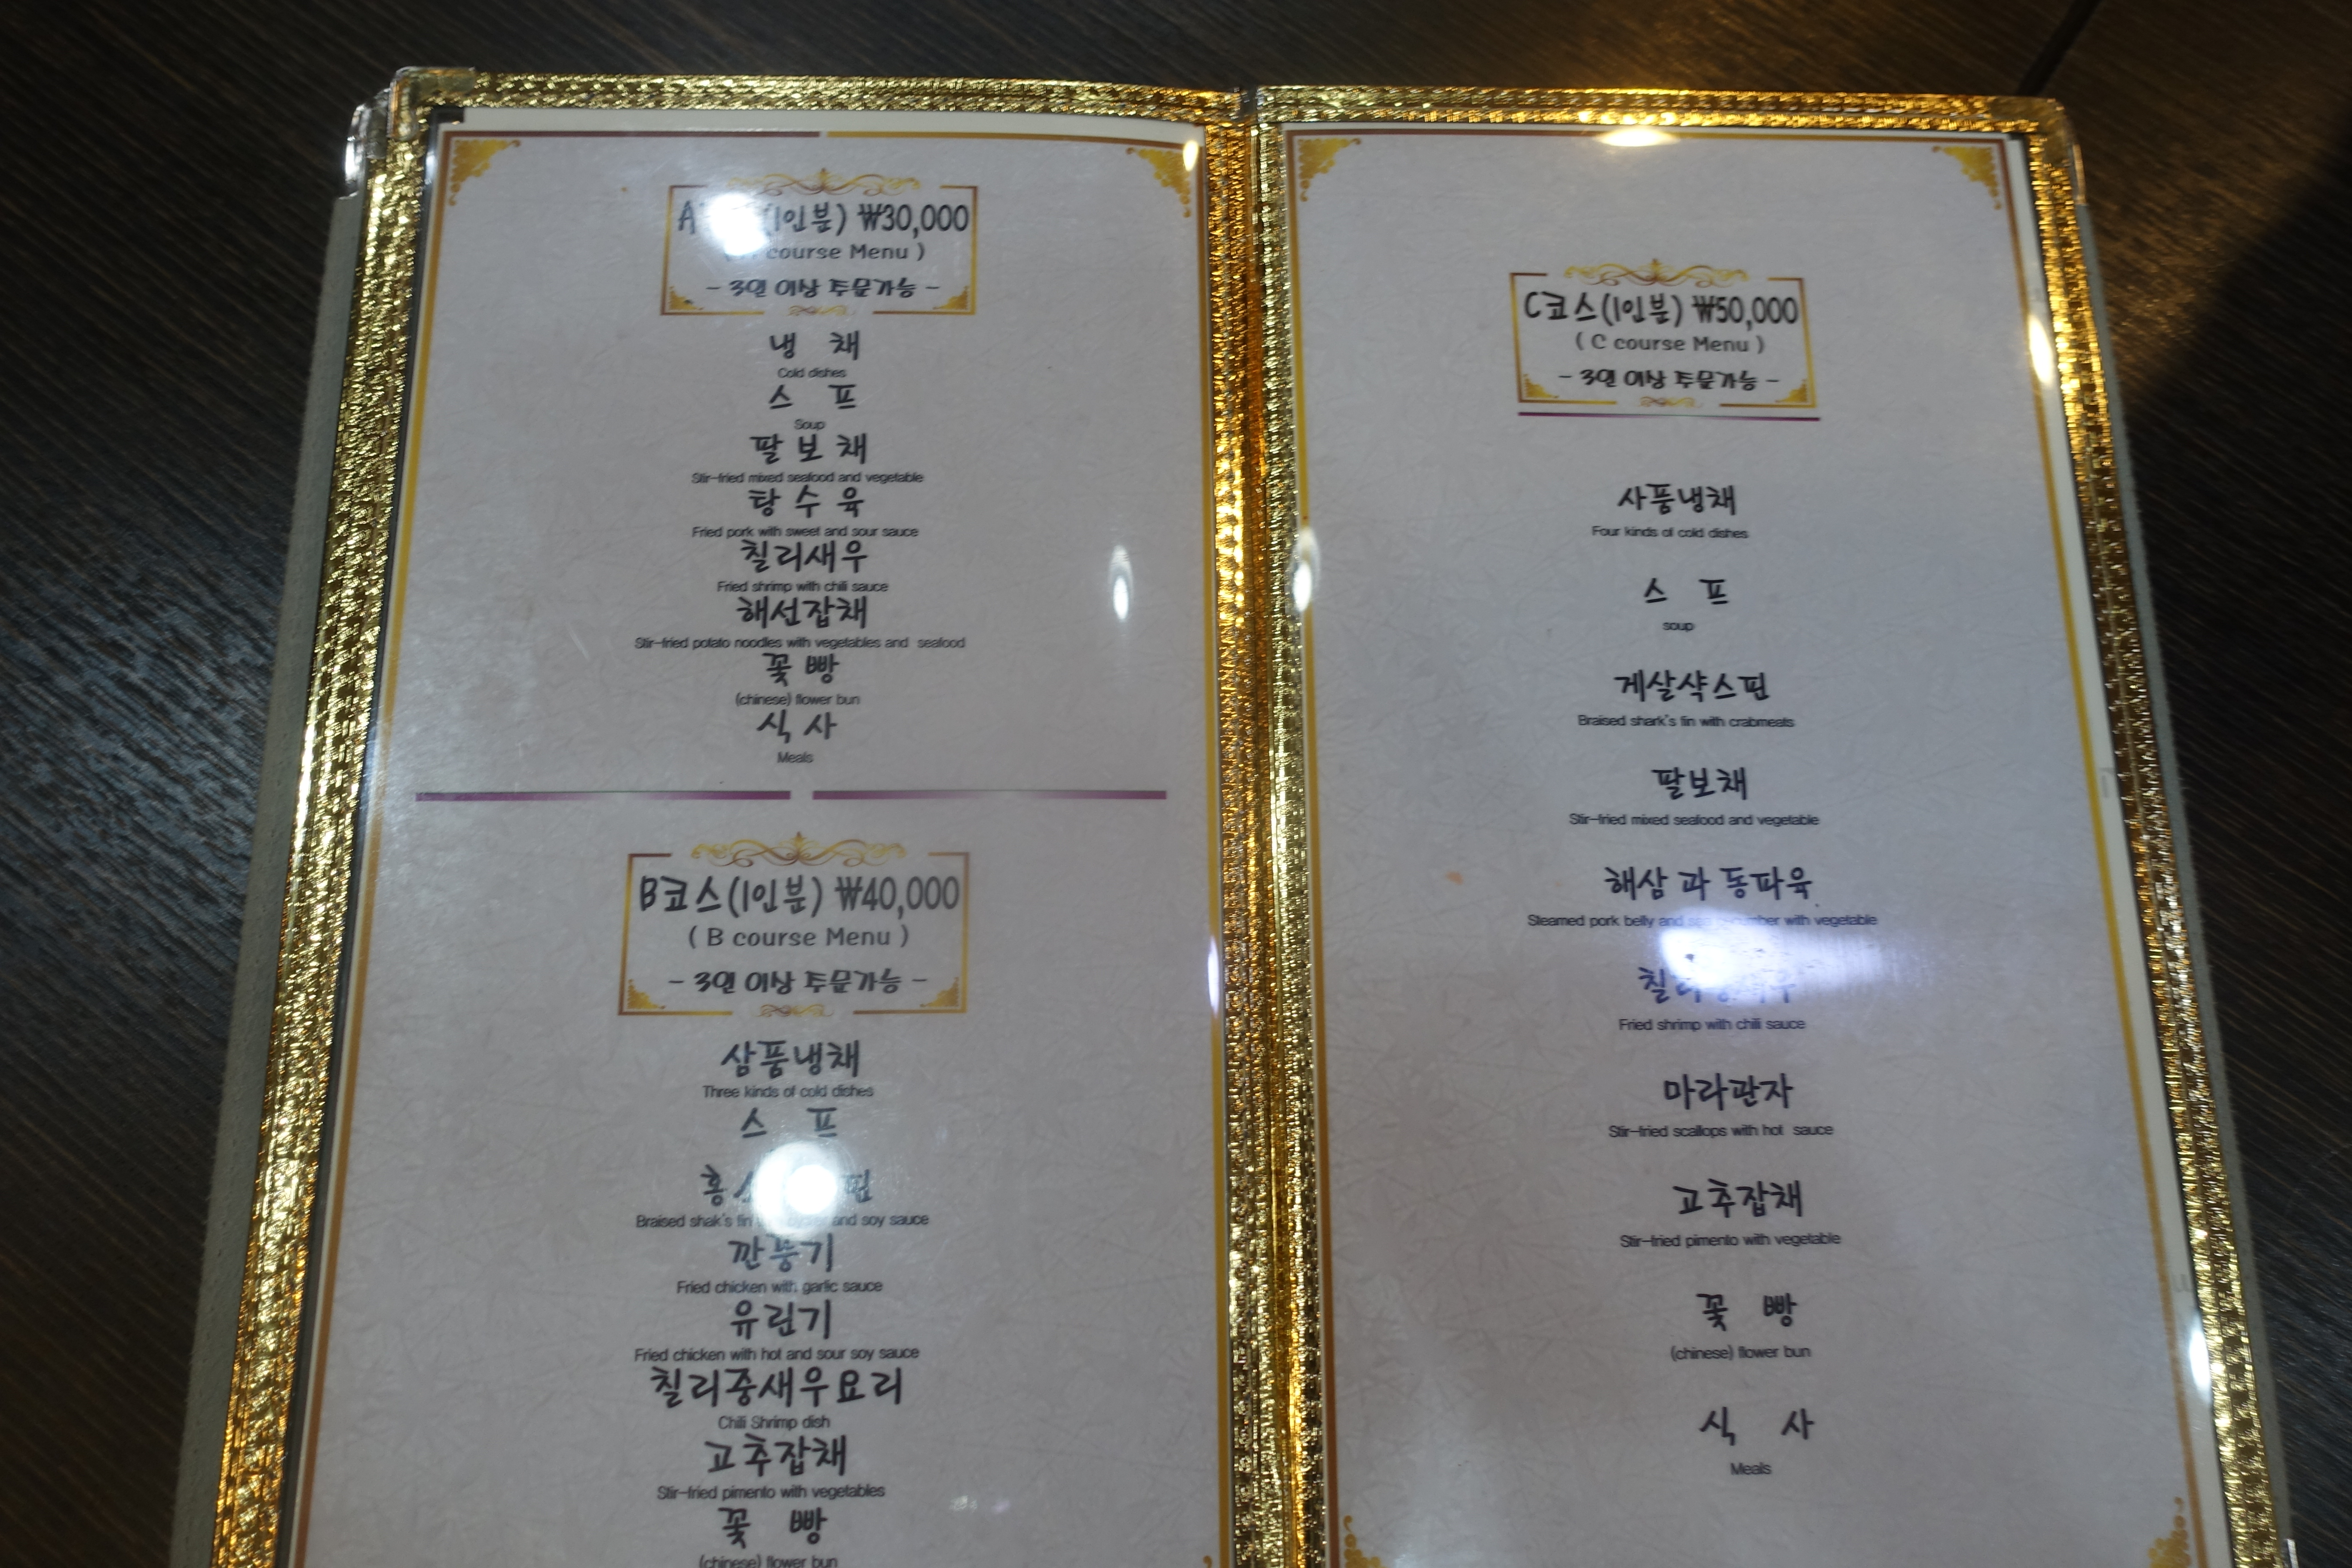 A (1인분) ₩30,000
course Menu )
- 3인 이상 주문가능 -
냉 채
Cold dishes
스 프
Soup
팔 보 채
Stir-fried mixed seafood and vegetable
탕 수 육
Fried pork with sweet and sour sauce
칠리새우
Fried shrimp with chili sauce
해선잡채
Stir-fried potato noodles with vegetables and seafood
꽃 빵
(chinese) flower bun
식 사
Meals
B코스(1인분) ₩40,000
( B course Menu )
- 3인 이상 주문가능 -
삼품냉채
Three kinds of cold dishes
스 프
Braised shak's fin and soy sauce
깐풍기
Fried chicken with garlic sauce
유린기
Fried chicken with hot and sour soy sauce
칠리중새우요리
Chili Shrimp dish
고추잡채
Stir-fried pimento with vegetables
꽃 빵
(chinese) flower bun
C코스(1인분) ₩50,000
( C course Menu )
- 3인 이상 주문가능 -
사품냉채
Four kinds of cold dishes
스 프
soup
게살샥스핀
Braised shark's fin with crabmeats
팔보채
Stir-fried mixed seafood and vegetable
해삼 과 동파육
Steamed pork belly and with vegetable
Fried shrimp with chili sauce
마라관자
Stir-fried scallops with hot sauce
고추잡채
Stir-fried pimento with vegetable
꽃 빵
(chinese) flower bun
식 사
Meals